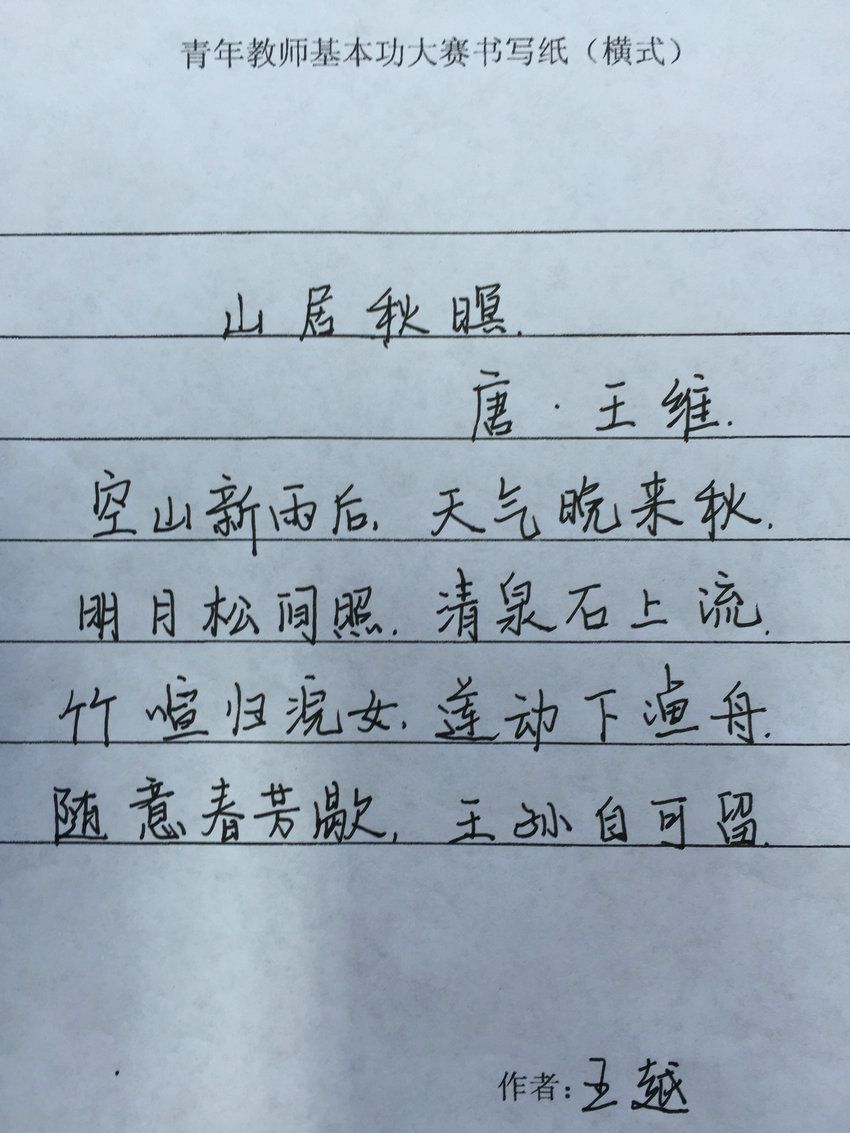 青年教师基本功大赛书写纸（横式）
山居秋暝.
唐·王维.
空山新雨后, 天气晚来秋.
明月松间照, 清泉石上流.
竹喧归浣女, 莲动下渔舟.
随意春芳歇, 王孙自可留.
作者：王越